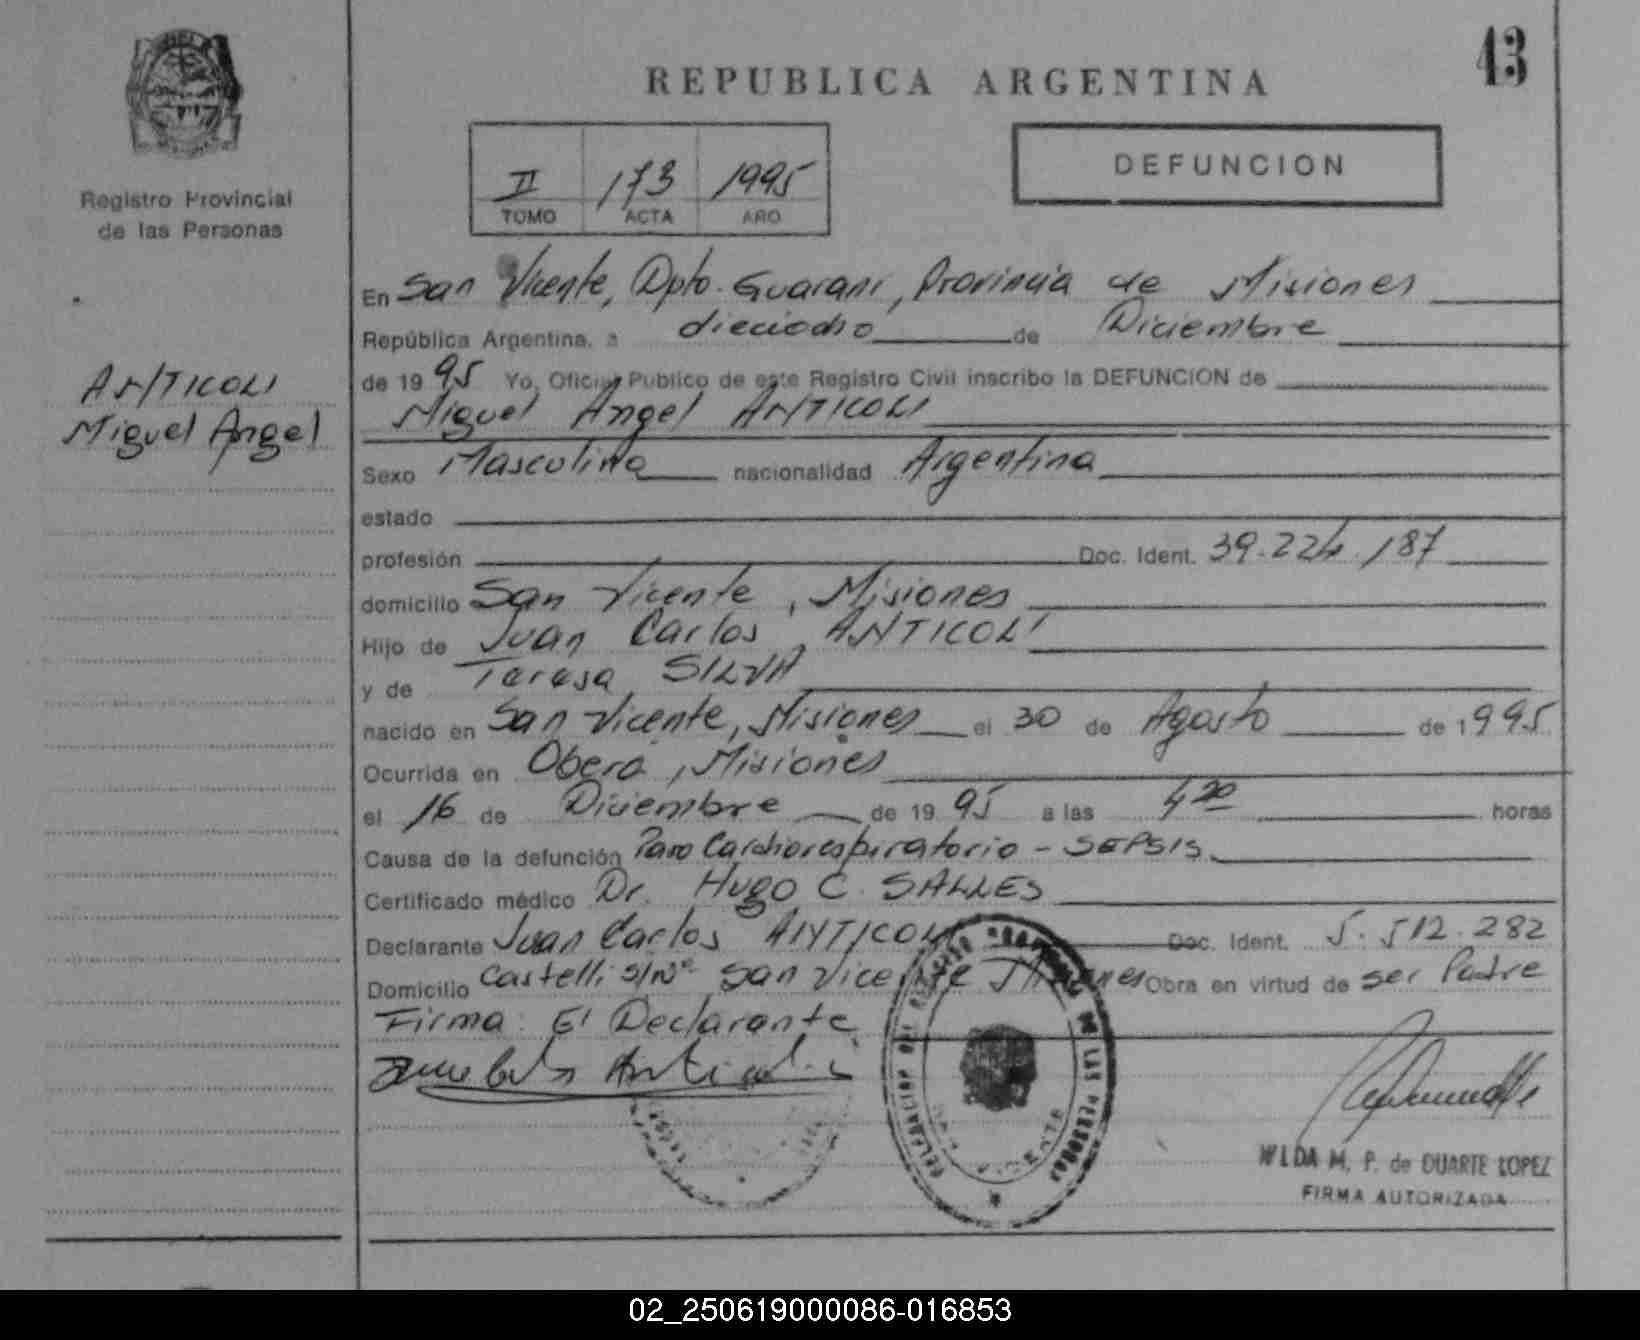 43
REPUBLICA ARGENTINA
Registro Provincial
de las Personas
II 173 1995
TOMO ACTA AÑO
DEFUNCION
ANTICOLI
Miguel Angel
En San Vicente, Dpto. Guarani, Provincia de Misiones
República Argentina, a dieciocho de Diciembre
de 1995 Yo, Oficial Público de este Registro Civil inscribo la DEFUNCION de
Miguel Angel ANTICOLI
Sexo Masculino nacionalidad Argentina
estado
profesión Doc. Ident. 39.224.187
domicilio San Vicente, Misiones
Hijo de Juan Carlos ANTICOLI
y de Teresa SILVA
nacido en San Vicente, Misiones el 30 de Agosto de 1995
Ocurrida en Oberá, Misiones
el 16 de Diciembre de 1995 a las 4 20 horas
Causa de la defunción Paro Cardiorespiratorio - SEPSIS
Certificado médico Dr. Hugo C. SALLES
Declarante Juan Carlos ANTICOLI Doc. Ident. 5.512.282
Domicilio Castelli S/Nº San Vicente Misiones Obra en virtud de ser Padre
Firma: El Declarante
Juan Carlos Anticoli
DELEGACION DEL REGISTRO PROVINCIAL DE LAS PERSONAS
SAN VICENTE
WILDA M. P. de DUARTE LOPEZ
FIRMA AUTORIZADA
02_250619000086-016853